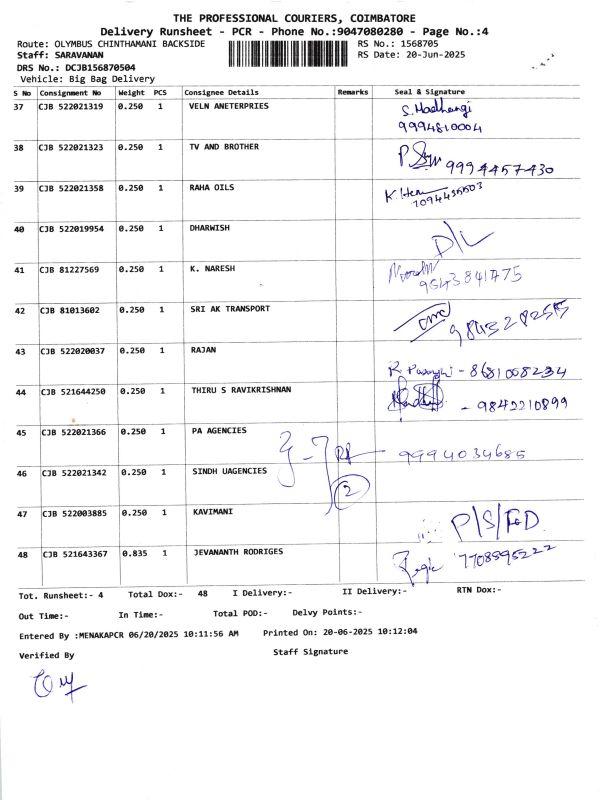 THE PROFESSIONAL COURIERS, COIMBATORE
Delivery Runsheet - PCR - Phone No.:9047080280 - Page No.:4
Route: OLYMBUS CHINTHAMANI BACKSIDE RS No.: 1568705
Staff: SARAVANAN RS Date: 20-Jun-2025
DRS No.: DCJB156870504
Vehicle: Big Bag Delivery
S No Consignment No Weight PCS Consignee Details Remarks Seal & Signature
37 CJB 522021319 0.250 1 VELN ANETERPRIES S. Madhangi
9994810004
38 CJB 522021323 1 TV AND BROTHER 9994457430
39 CJB 522021358 0.250 1 RAHA OILS
40 CJB 522019954 0.250 1 DHARWISH D/L
41 CJB 81227569 0.250 1 K. NARESH
9543841775
42 CJB 81013602 0.250 1 SRI AK TRANSPORT
43 CJB 522020037 0.250 1 RAJAN
44 CJB 521644250 0.250 1 THIRU S RAVIKRISHNAN - 9842210899
45 CJB 522021366 0.250 1 PA AGENCIES 9994034685
46 CJB 522021342 0.250 1 SINDH UAGENCIES 2
47 CJB 522003885 0.250 1 KAVIMANI
48 CJB 521643367 0.835 1 JEVANANTH RODRIGES 7708595222
Tot. Runsheet:- 4 Total Dox:- 48 I Delivery:- II Delivery:- RTN Dox:-
Out Time:- In Time:- Total POD:- Delvy Points:-
Entered By :MENAKAPCR 06/20/2025 10:11:56 AM Printed On: 20-06-2025 10:12:04
Verified By Staff Signature